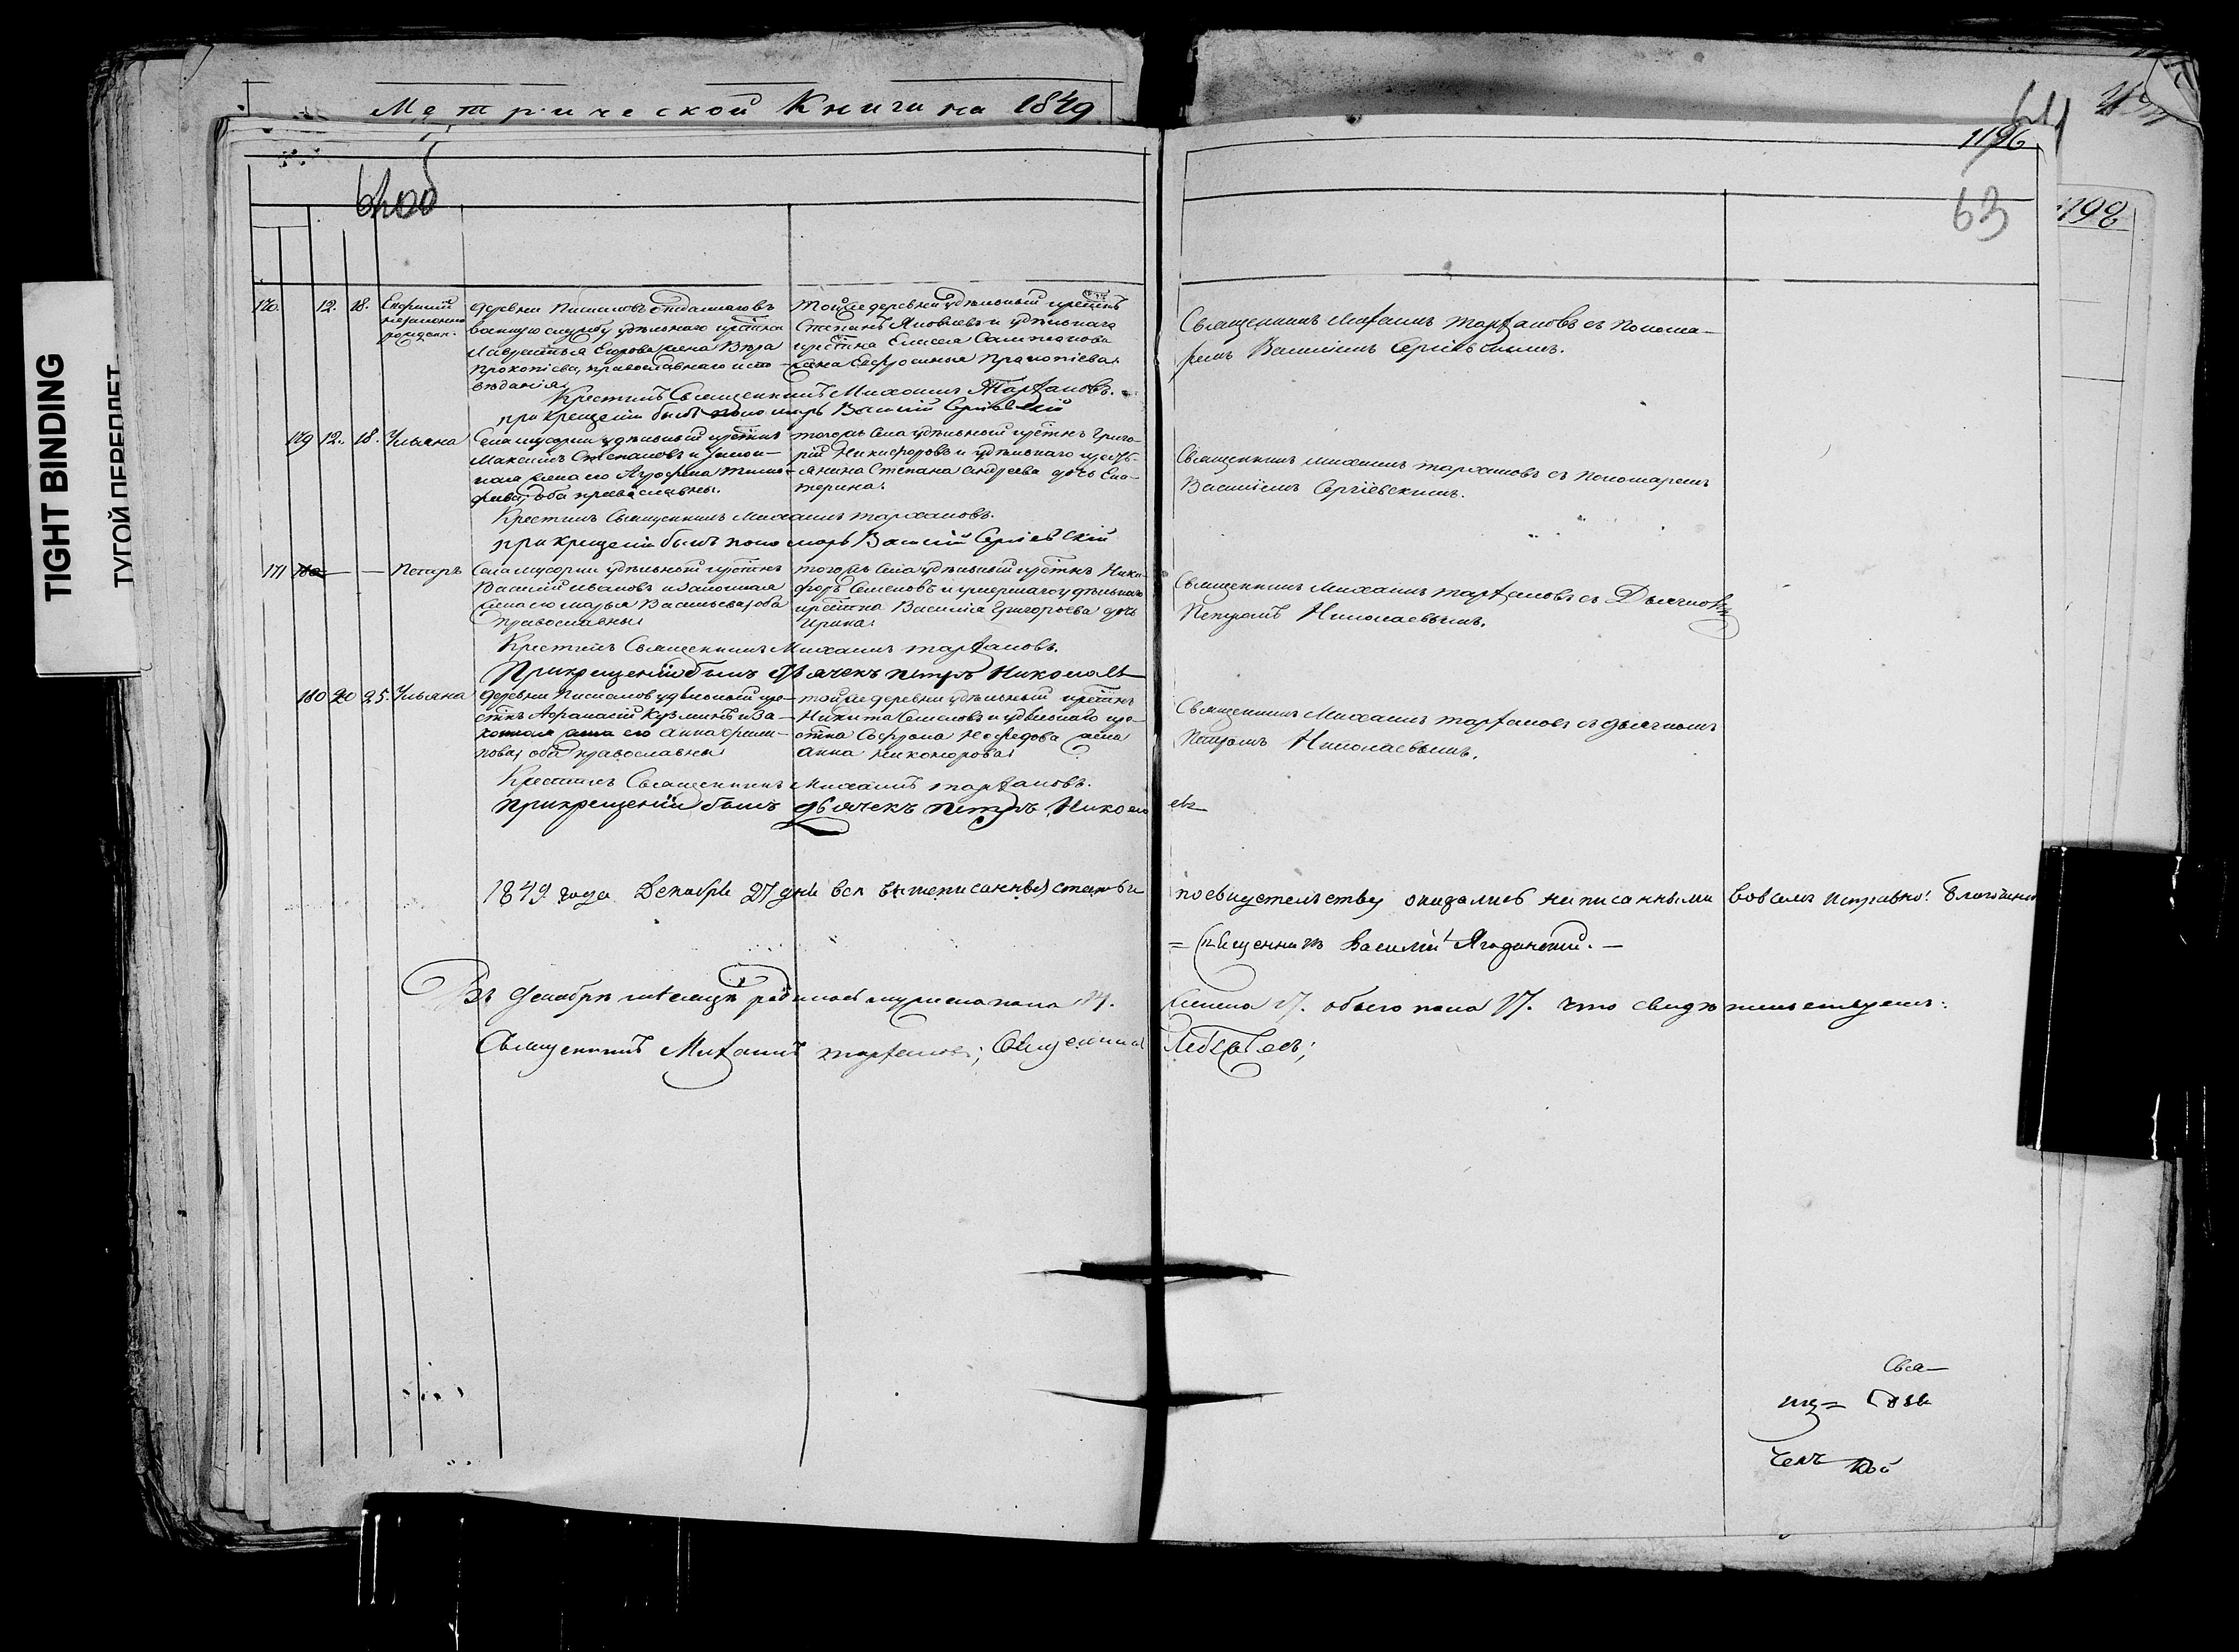 Метрической Книги на 1849
1196
63
1198
TIGHT BINDING
ТУГОЙ ПЕРЕПЛЕТ
170. 12. 18. Евфимий незаконно рожденн.
деревни отданнаго въ
военную службу удѣльнаго крестна
Лаврентья Егорова жена Вѣра
Прокопiева, православнаго испо-
вѣданiя.
Тойже деревни удѣльный крестнъ
Степанъ Яковлевъ и удѣльнаго
крестна Елисея
жена Евфросинья Прокопiева.
Священникъ Михаилъ Тархановъ съ Понома-
ремъ Василiемъ Сергiевскимъ.
Крестилъ Священникъ Михаилъ Тархановъ.
при крещенiи былъ пономарь Василiй Сергiевскiй
179 12. 18. Ульяна
Села удѣльный крестнъ
Максимъ Степановъ и закон-
ная жена его Агрофена Тимо-
феева, оба православны.
тогожъ села удѣльный крестнъ Григо-
рiй Никифоровъ и удѣльнаго кресть-
янина Степана Андреева дочь Ека-
терина.
Священникъ Михаилъ Тархановъ съ Пономаремъ
Василiемъ Сергiевскимъ.
Крестилъ Священникъ Михаилъ Тархановъ.
при крещенiи былъ пономарь Василiй Сергiевскiй
171 — — Петръ
Села удѣльный крестнъ
Василiй Ивановъ и законная
жена его Марья Васильева, оба
православны.
тогожъ села удѣльный крестнъ Ники-
форъ Семеновъ и умершаго удѣльнаго
крестна Василiя Григорьева дочь
Ирина.
Священникъ Михаилъ Тархановъ съ Дьячкомъ
Петромъ Николаевымъ.
Крестилъ Священникъ Михаилъ Тархановъ.
При крещенiи былъ дьячекъ Петръ Николаевъ
180 20 25. Ульяна
деревни удѣльный кре-
стнъ Афанасiй Кузминъ и за-
конная жена его Анна Филип-
пова, оба православны
тойже деревни удѣльный крестнъ
Никита Семеновъ и удѣльнаго кре-
стна Софрона жена
Анна Никонорова.
Священникъ Михаилъ Тархановъ съ дьячкомъ
Петромъ Николаевымъ.
Крестилъ Священникъ Михаилъ Тархановъ.
При крещенiи былъ дьячекъ Петръ Николаевъ
1849 года Декабря 27 дня всѣ вышеписанныя статьи по свидетельству оказались написанными вовсемъ исправно: Благочинный
= Священникъ Василiй Ягодинскiй. —
Въ Декабрѣ мѣсяцѣ родилось мужеска пола женска обоего пола что свидѣтельствуемъ:
Священникъ Михаилъ Тархановъ; Священникъ